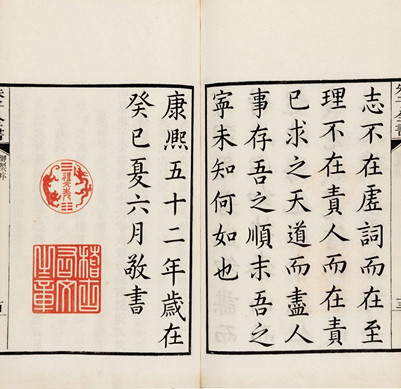 志不在虛詞而在至
理不在責人而在責
已求之天道而盡人
事存吾之順末吾之
寧未知何如也
康熙五十二年歲在
癸巳夏六月敬書
稽古
右文
之章